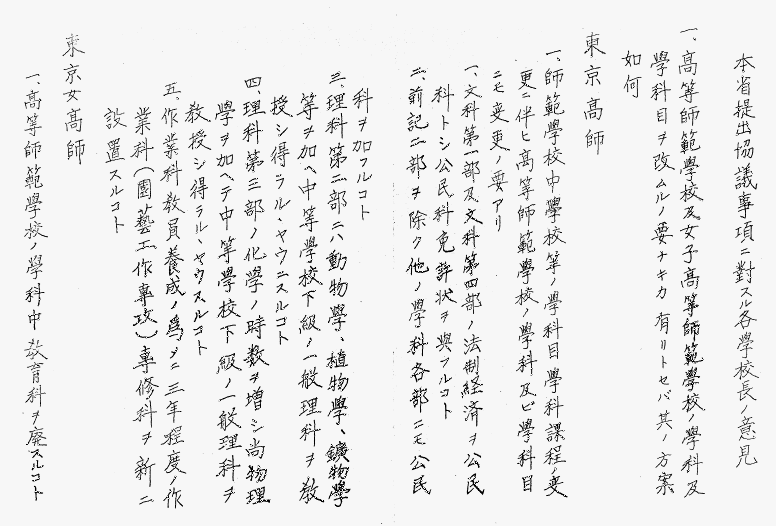 本省提出協議事項ニ對スル各學校長ノ意見
一、高等師範學校及女子高等師範學校ノ學科及
學科目ヲ改ムルノ要ナキカ有リトセバ其ノ方案
如何
東京高師
一、師範學校中學校等ノ學科目學科課程ノ変
更ニ伴ヒ高等師範學校ノ學科及ビ學科目
ニモ変更ノ要アリ
一、文科第一部及文科第四部ノ法制経済ヲ公民
科トシ公民科免許状ヲ與フルコト
二、前記二部ヲ除ク他ノ學科各部ニモ公民
科ヲ加フルコト
三、理科第二部ニハ動物學、植物學、鑛物學
等ヲ加ヘ中等學校下級ノ一般理科ヲ教
授シ得ラルヽヤウニスルコト
四、理科第三部ノ化学ノ時数ヲ増シ尚物理
學ヲ加ヘテ中等學校下級ノ一般理科ヲ
教授シ得ラルヽヤウスルコト
五、作業科教員養成ノ為メニ三年程度ノ作
業科（園藝工作専攻）専修科ヲ新ニ
設置スルコト
東京女高師
一、高等師範學校ノ學科中教育科ヲ廃スルコト